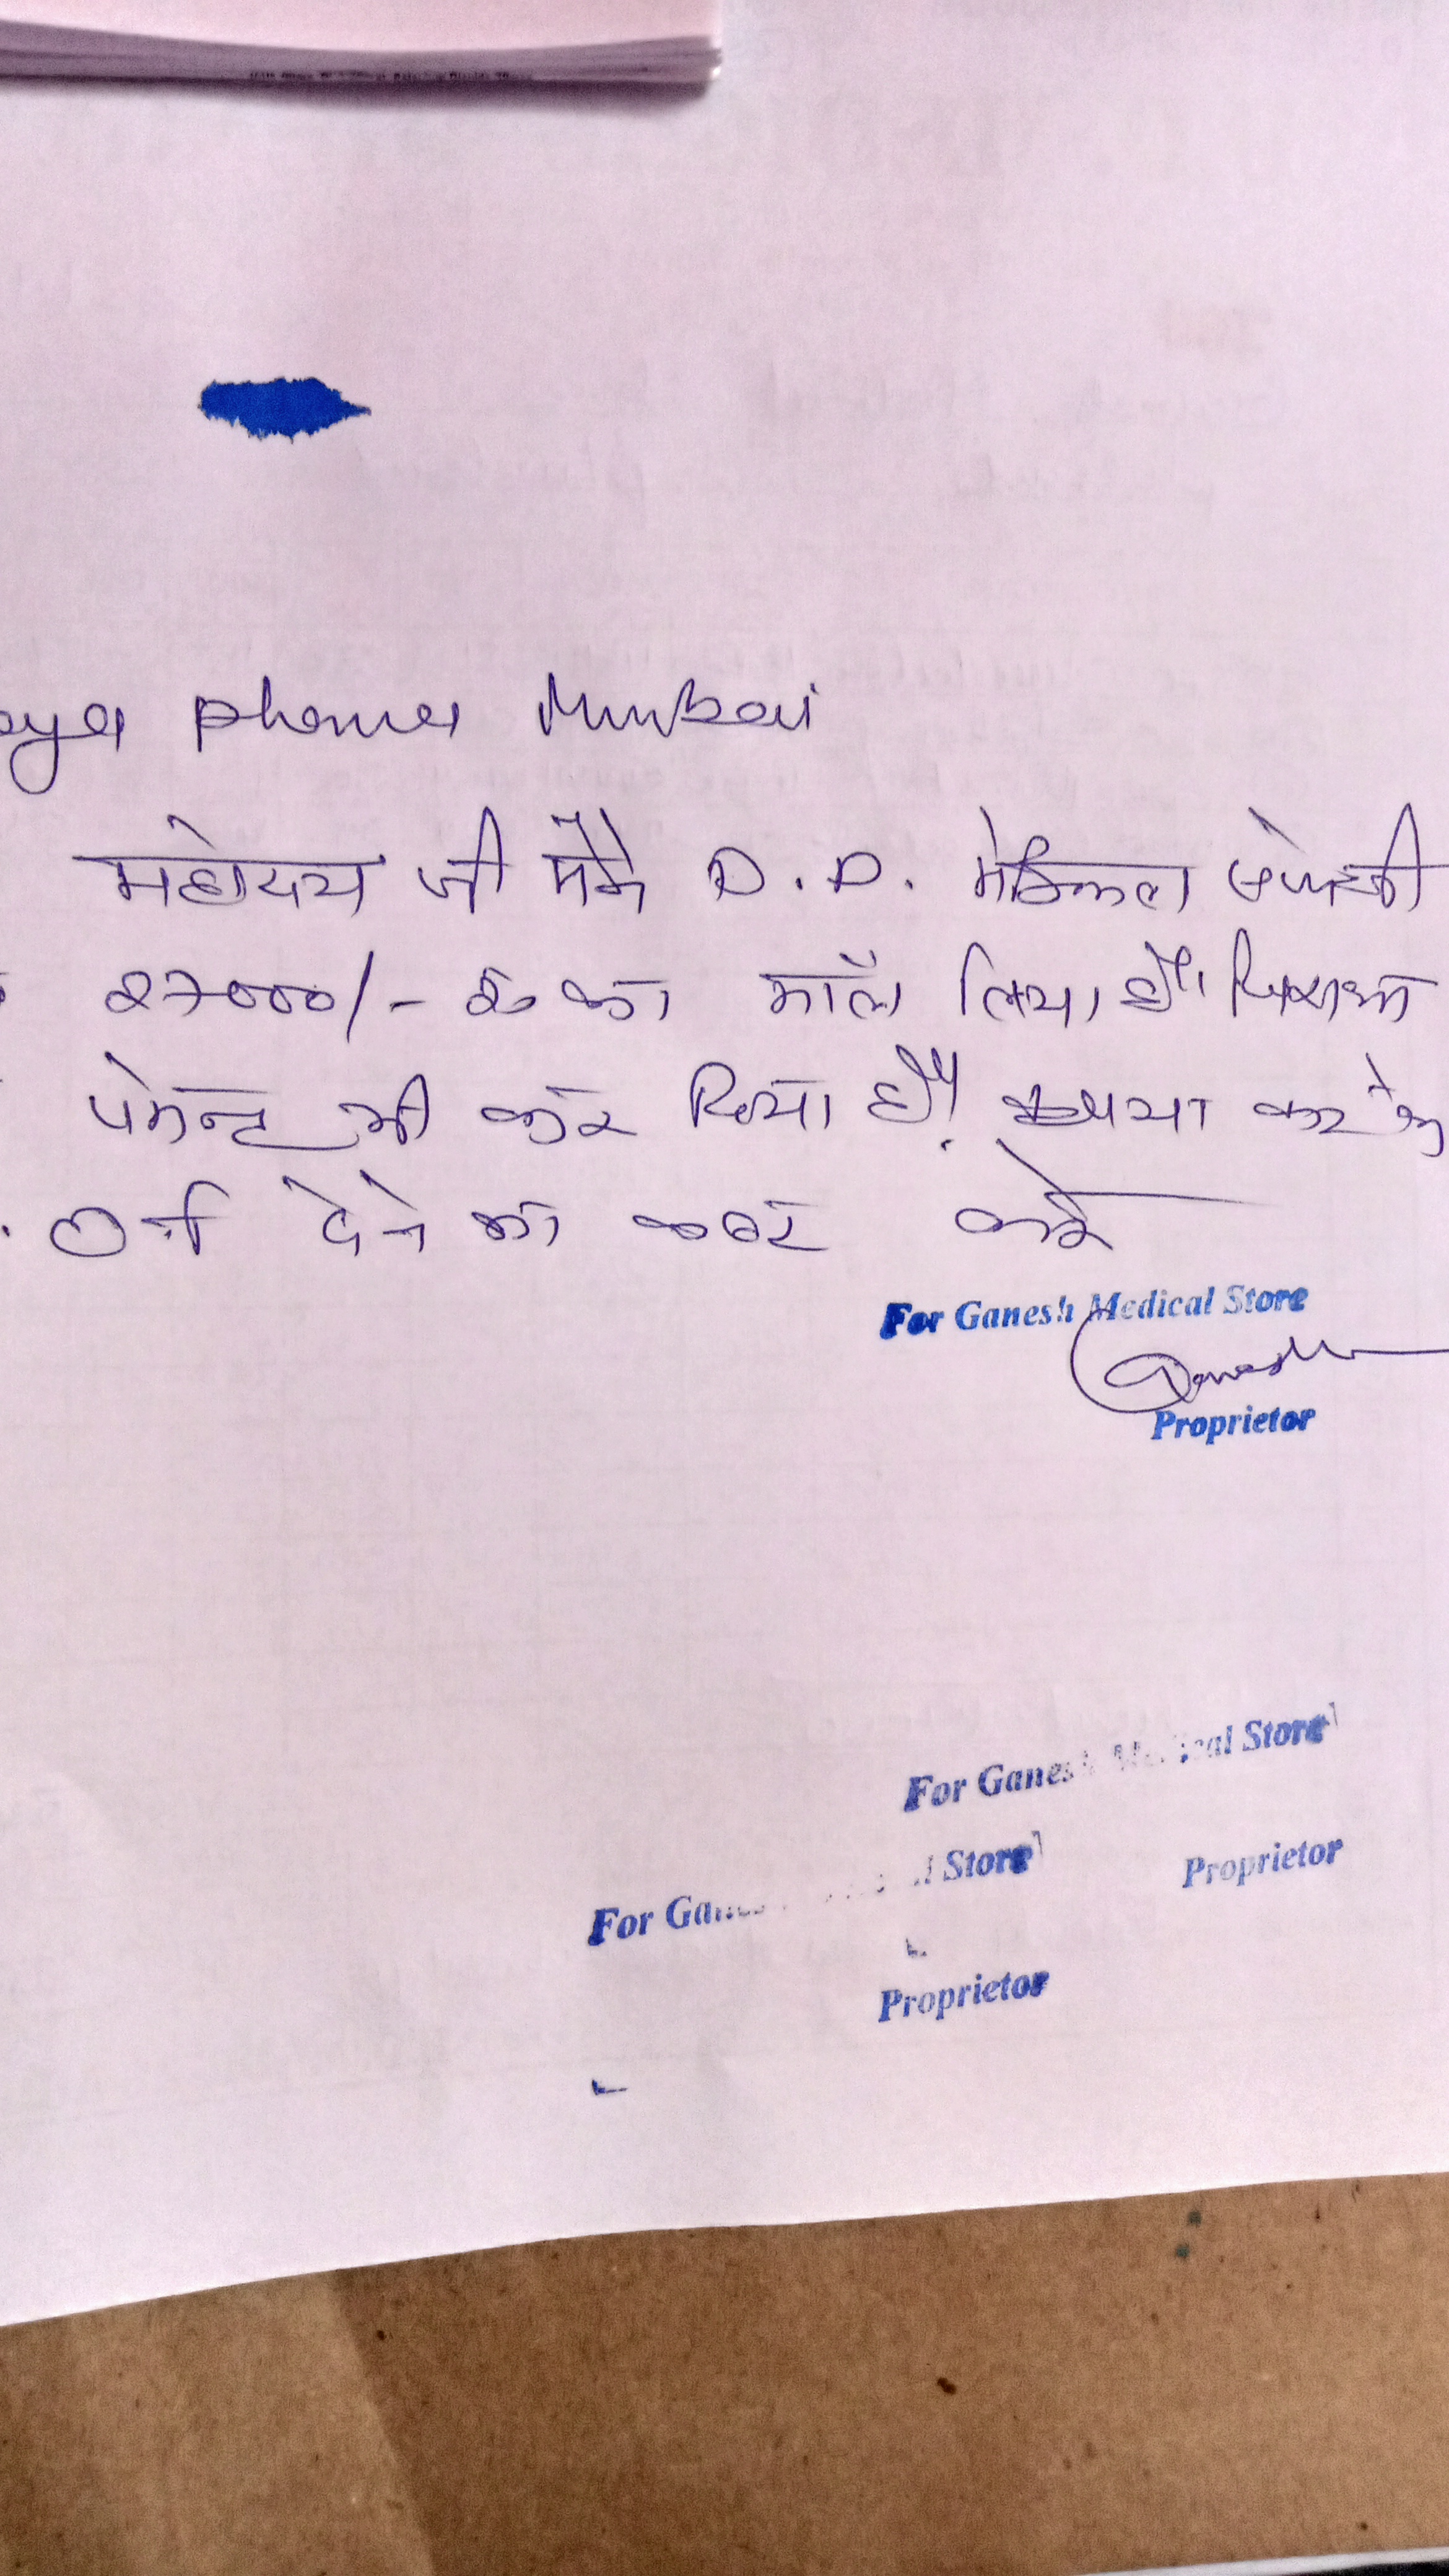 pharma Mumbai
महोदय जी मैने D.D. मेडिकल ऐजेन्सी
27000/- रु का माल लिया है। जिसका
पेमेन्ट भी कर दिया है। कृपया कर के
देने का कष्ट करे
For Ganesh Medical Store
Ganesh
Proprietor
For Ganesh Medical Store
Proprietor
For Store
Proprietor